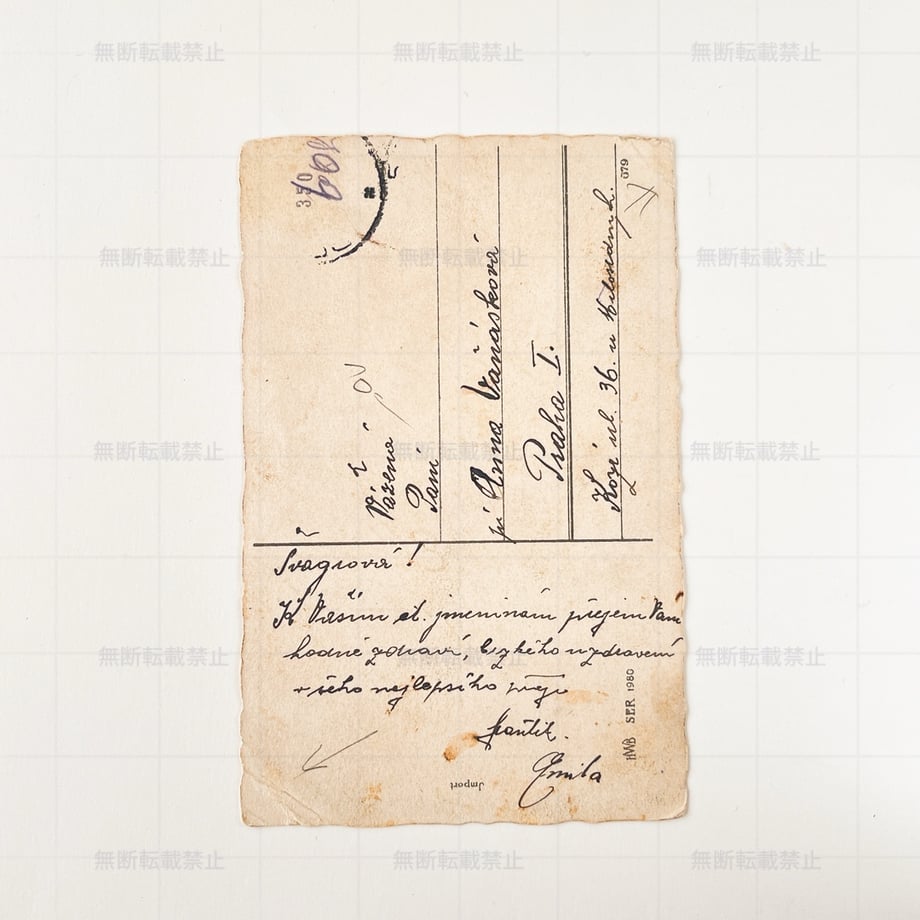 Švagrová!
K Vašim ct. jmeninám přejem Vám
hodně zdraví, brzkého uzdravení
všeho nejlepšího přeje
Emila
Vážená
Paní
pí Anna Vaňásková
Praha I.
Kozí ul. 36. u
350
079
HWB SER 1980
Import
無断転載禁止 無断転載禁止 無断転載禁止
無断転載禁止 無断転載禁止 無断転載禁止
無断転載禁止 無断転載禁止 無断転載禁止
無断転載禁止 無断転載禁止 無断転載禁止
無断転載禁止 無断転載禁止 無断転載禁止